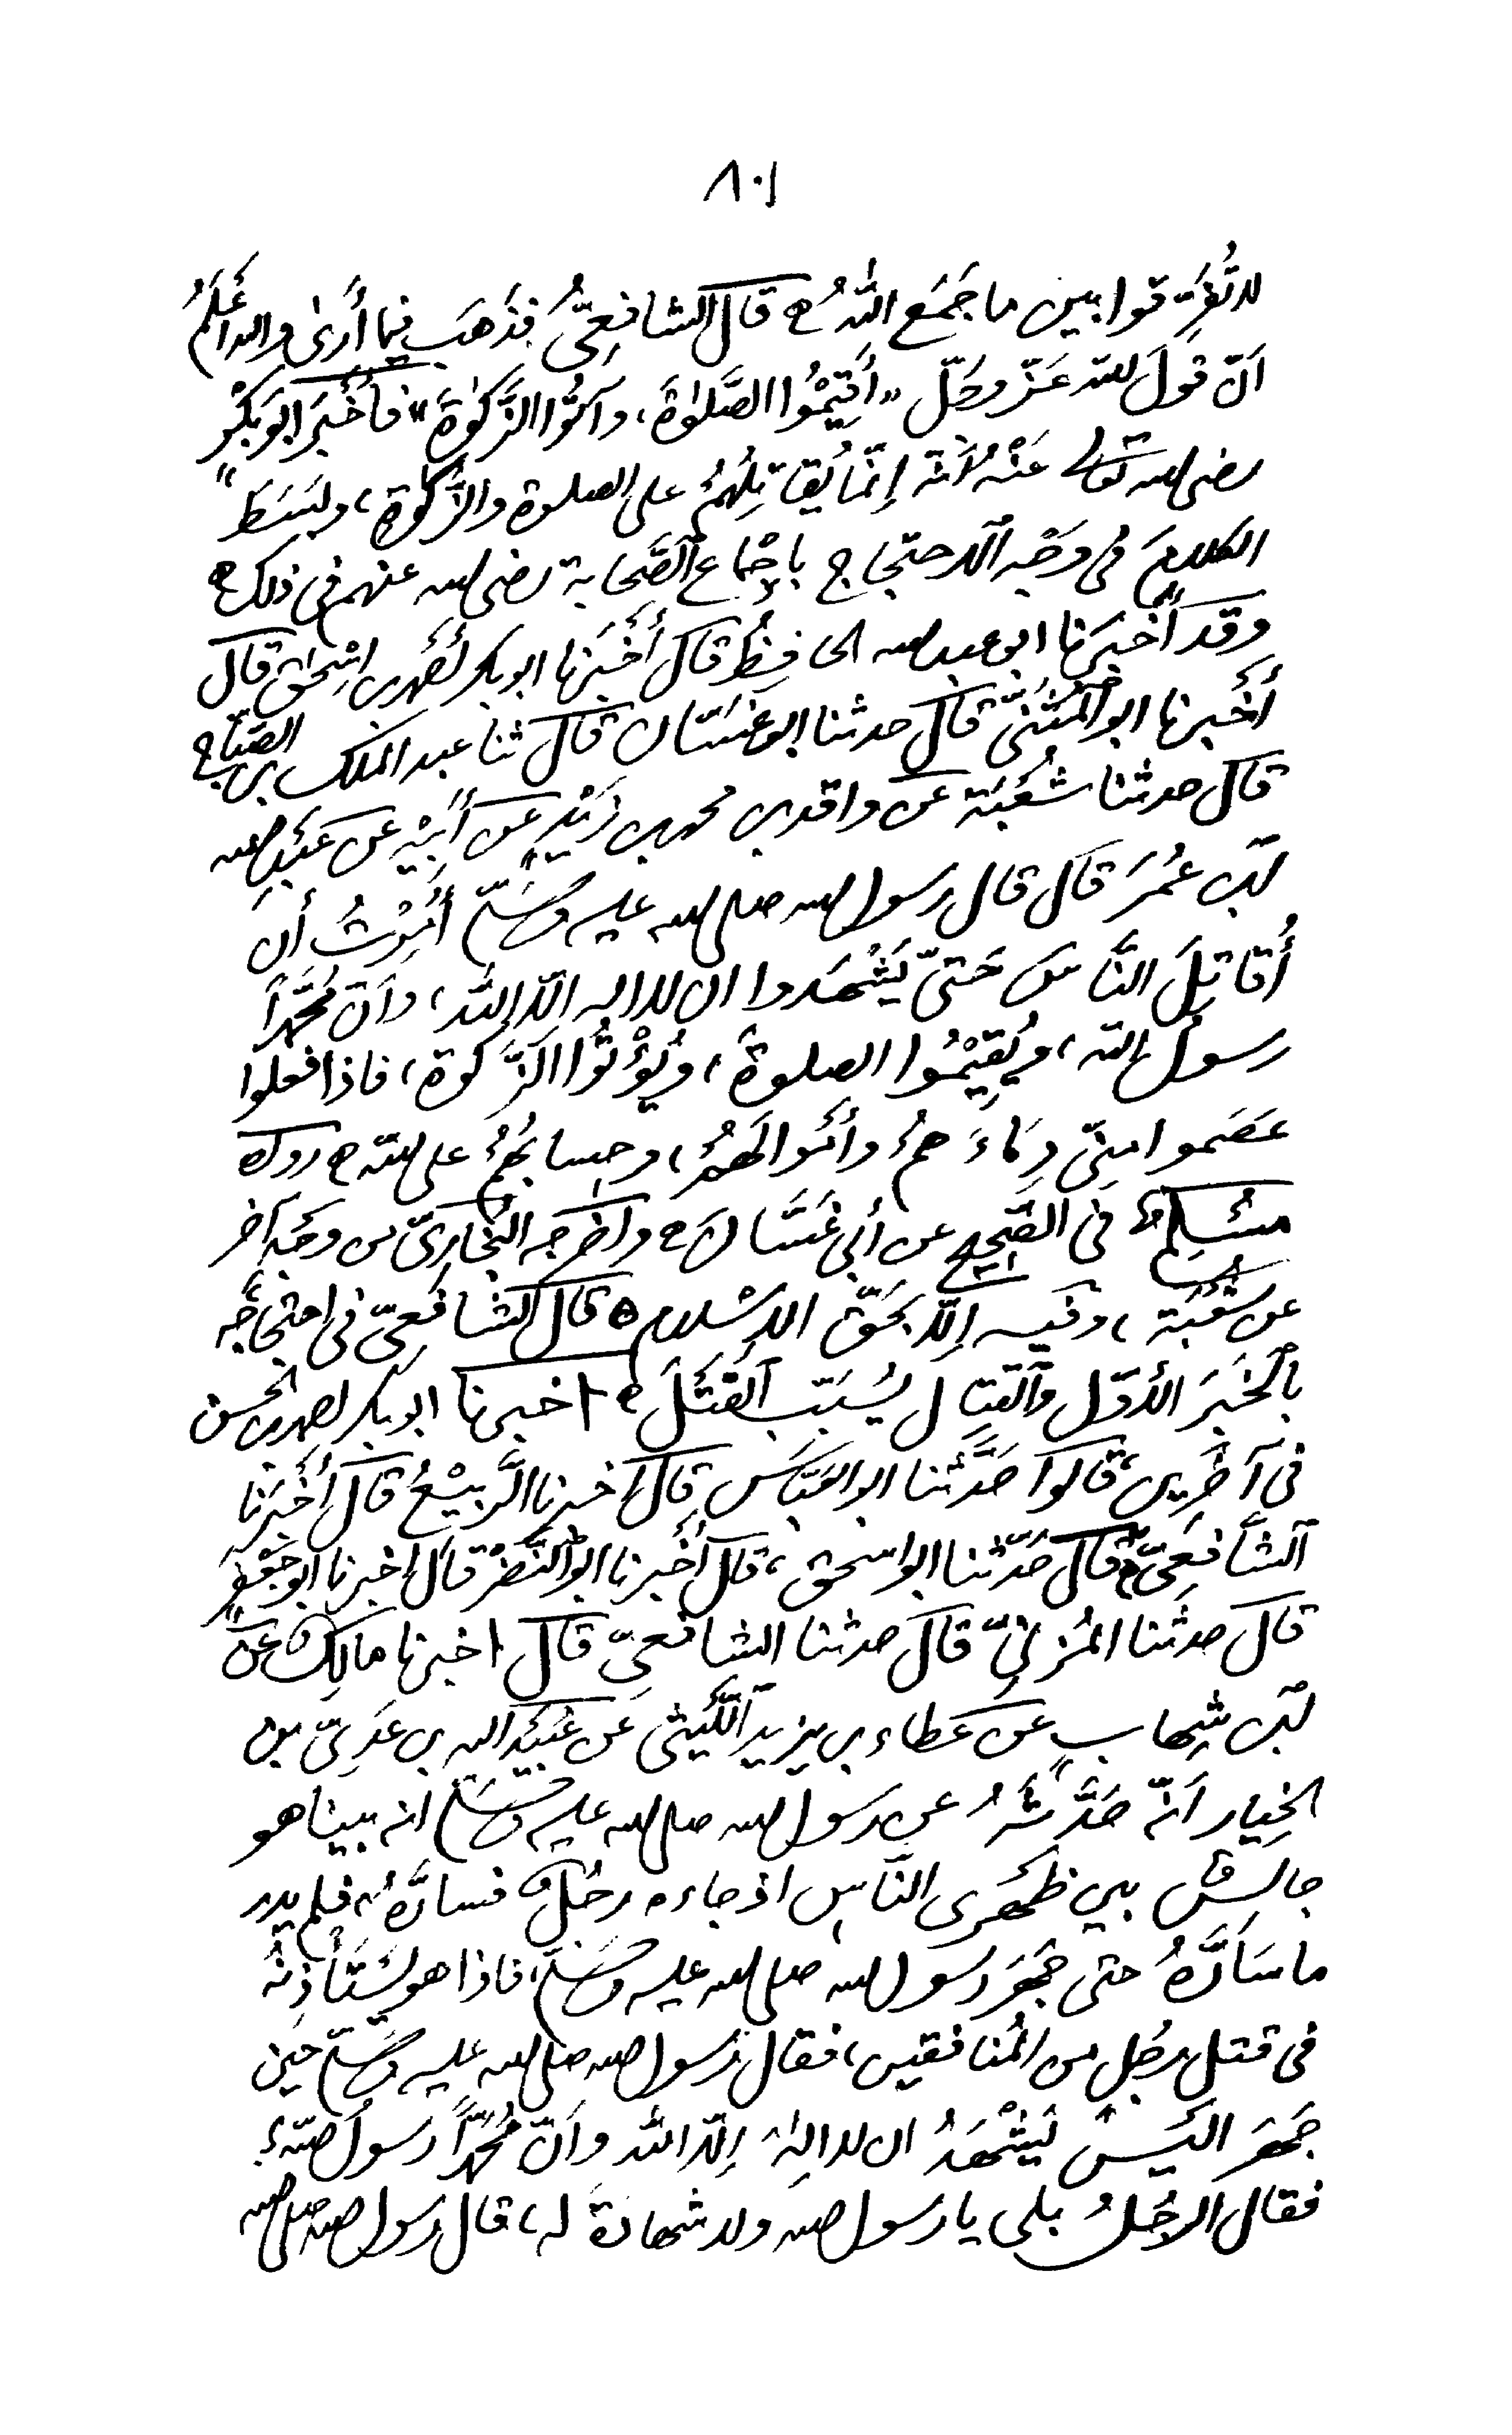 ٨٠١
لا تُفَرِّقوا بين ما جَمَعَ اللهُ ه قال الشافعيُّ فذَهَب فيما أُرىٰ والله أعلَمُ
أنّ قولَ الله عَزّ وجَلّ "أَقِيْمُوا الصَّلوٰةَ، وآتُوا الزَّكوٰةَ" فأَخْبَرَ ابو بَكْرٍ
رضى الله تعالى عَنْهُ أنّه إنّما يُقاتِلُهُمْ على الصلوة والزَّكوٰةِ، وبَسَطَ
الكلامَ فى وَجْه الاحتجاج بإجْماع الصَّحابة رضى الله عنهم فى ذلك ه
وقد أَخْبَرَنا ابو عبد الله الحافِظُ قال أَخْبَرَنا ابو بكر أحمد بن اسْحٰق قال
أَخْبرنا ابو المُثَنّى قال حدثنا ابو غَسّان قال ثنا عبد الملك بن الصَبّاح
قال حدثنا شُعْبَة عن واقد بن محمد بن زَيْدٍ عن أَبِيْهِ عن عَبْد الله
بْن عُمَرَ قال قال رسول الله صلى الله عليه وسَلَّم أُمِرْتُ أن
أُقاتِلَ النَّاسَ حَتىّ يَشْهَدوا ان لا اله إلاّ اللهُ، وأنّ مُحَمَّداً
رسولُ الله، ويُقِيْمُوا الصلوةَ، ويُؤْتُوا الزَّكوةَ، فاذا فعلوا
عَصَموا مِنّى دِماءَهمْ وأَمْوالَهُمْ، وحِسابُهُمْ على الله ه رواه
مُسْلِمٌ فى الصَّحِيح عن أبى غَسَّانَ ه وأخرجه البُخارىّ من وجه آخر
عن شُعْبَة، وفيه إلّا بحَقّ الإسْلام ه قال الشافعىّ فى احتِجاجِه
بالخَبَر الأوّل والقِتال يُسَبِّب القَتْلَ ه أخبرنا ابو بكر احمد بن الحسن
فى آخَرِين، قالوا حَدَّثنا ابو العَبّاس قال اخبرنا الرَّبِيْعُ قال أَخْبَرَنا
الشَّافِعىّ ه قال حَدّثنا ابو اسحٰق، قال أَخْبرنا ابو النَّضْر قال اخبرنا ابو جَعْفَر
قال حدثنا المُزَنِىّ قال حدثنا الشافعىّ قال اخبرنا مالِكٌ عن
ابْن شِهابٍ عن عَطاء بن يزيد اللَّيْثى عن عُبَيْد الله بن عَدِىّ بن
الخِيار أنّه حَدَّثَهُ عن رسول الله صلى الله عليه وسَلَّم انه بينا هو
جالِسٌ بين ظَهْرَى النَّاسِ اذ جاءه رجُلٌ فسارَّهُ، فلم يدر
ما سَارَّهُ حتى جَهَرَ رسول الله صلى الله عليه وسَلَّم، فاذا هو يَسْتَأذِنُهُ
فى قتل رجُلٍ من المُنافقين، فقال رسول الله صلى الله عليه وسَلَّم حِين
جَهَرَ أليس يَشْهَدُ ان لا الٰهَ إلاّ اللهُ وأنّ مُحَمّداً رسولُ الله؟
فقال الرجُلُ بلى يا رسول الله ولا شهادَةَ له، قال رسول الله صلى الله